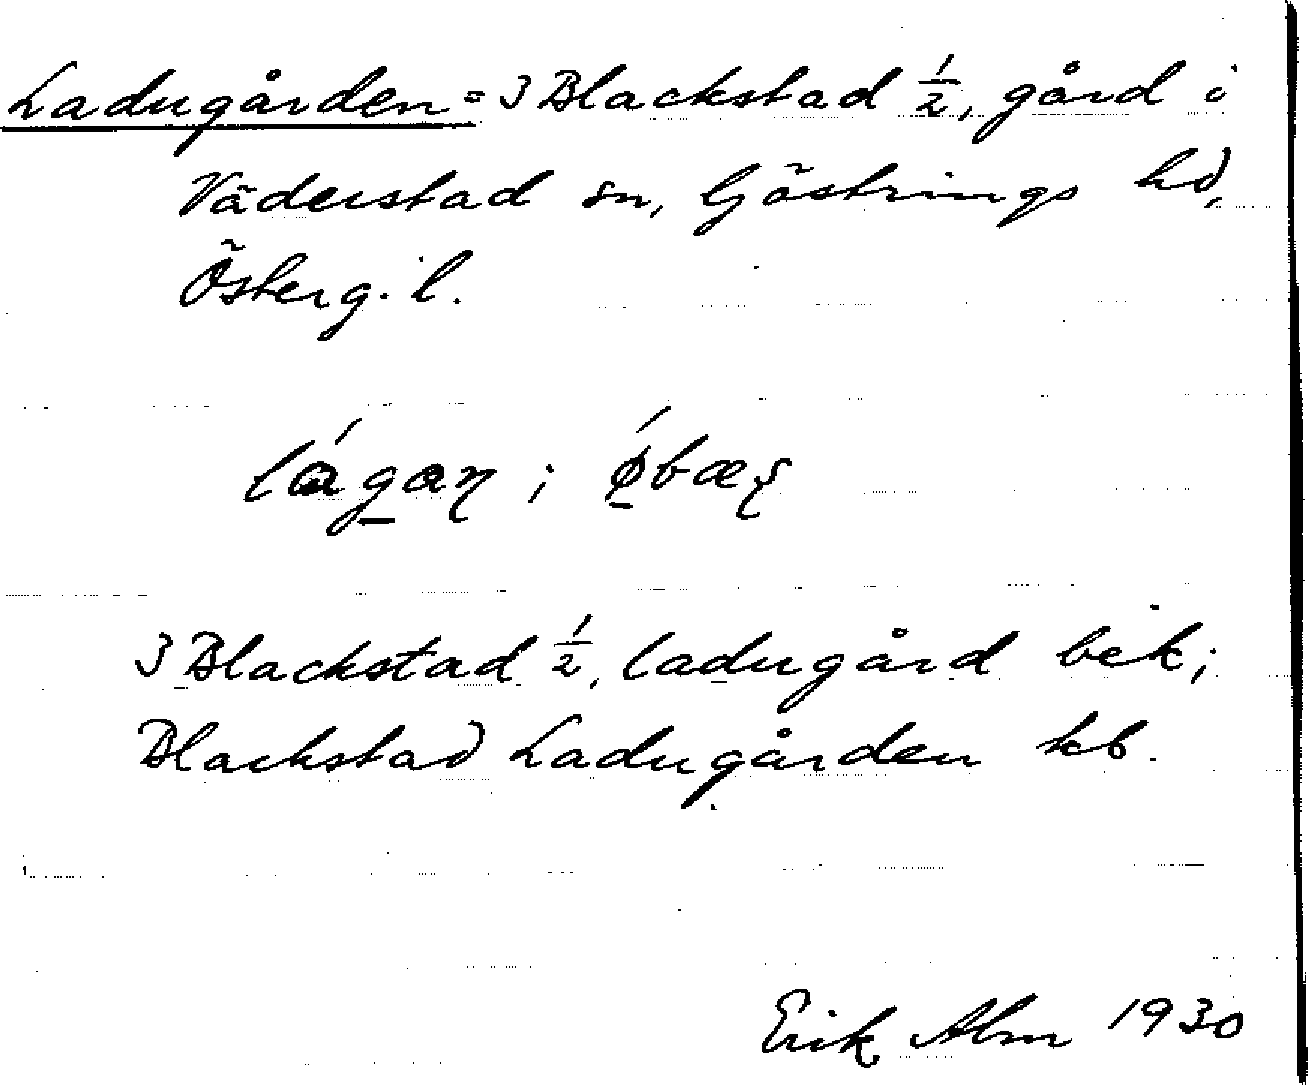 Ladugården = 3 Blackstad 1/2, gård i
Väderstad sn, Göstrings hd,
Österg. l.
lágan ; ǿbæȿ
3 Blackstad 1/2, ladugård bek;
Blackstad Ladugården kb.
Erik Alm 1930